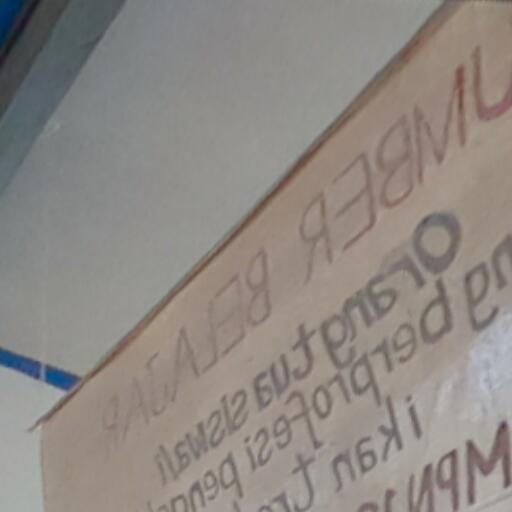 UMBER BELAJAR
Orangtua siswa/i
ng berprofesi peng
ikan tra
MPU